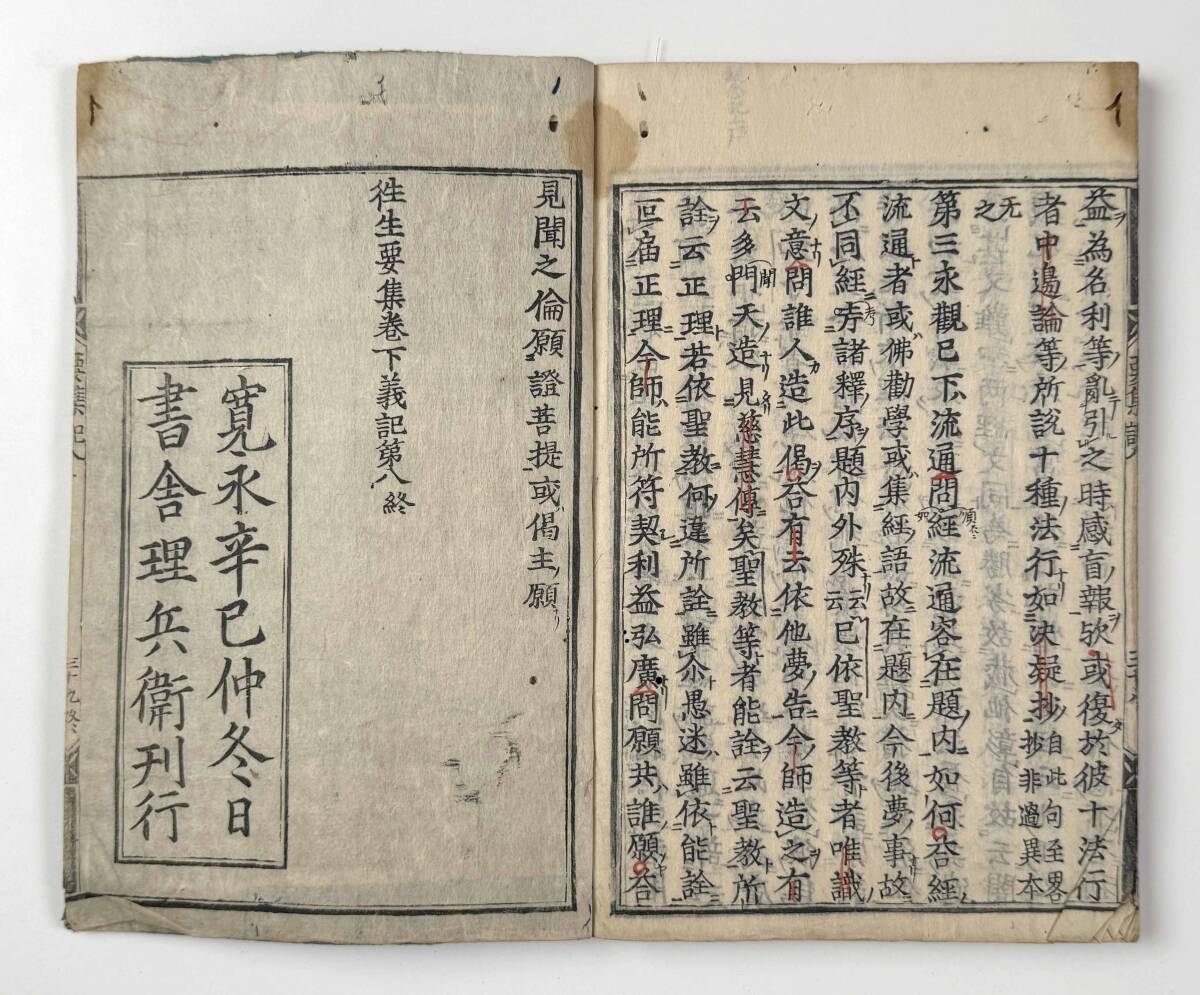 益為名利等亂引之時感盲報欤或復於彼十法行
者中邊論等所說十種法行如决疑抄抄自此句至畧抄非邊異本
无之
第三永觀已下流通問經流通容在題内如何荅經
流通者或佛勸學或集經語故在題内今後夢事故
不同經旁諸釋序題内外殊云云已依聖教等者唯識
文意問誰人造此偈荅有云依他夢告今師造之有
云多門天造見慈慧傳矣聖教等者能詮云聖教所
詮云正理若依聖教何違所詮雖尒愚迷雖依能詮
叵届正理今師能所符契利益弘廣問願共誰願荅
見聞之倫願證菩提或偈主願
徃生要集卷下義記第八終
寛永辛巳仲冬日
書舎理兵衛刊行